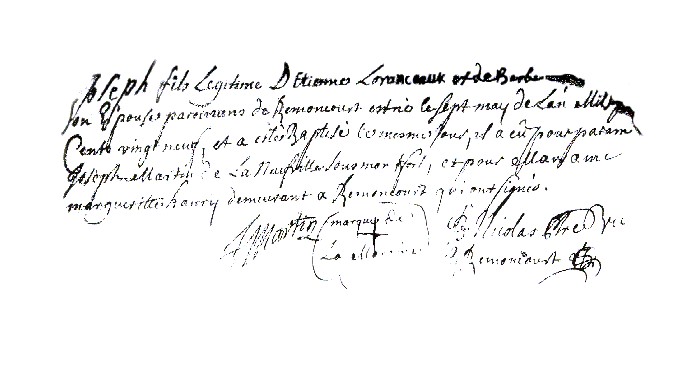 Joseph fils Legitime D'Etiennes Loranceaux et de Barbe
son Espouse paroissiens de Remoncourt est né le sept may de L'an Mil Sept
Cents vingt neuf, et a esté Baptisé le mesme jour, il a eû pour parain
Joseph Martin de La Neufville sous monfort, et pour Maraine
margueritte haury demeurant a Remoncourt qui ont signés.
J Martin (marque de N Nicolas
La Maraine) Remoncourt